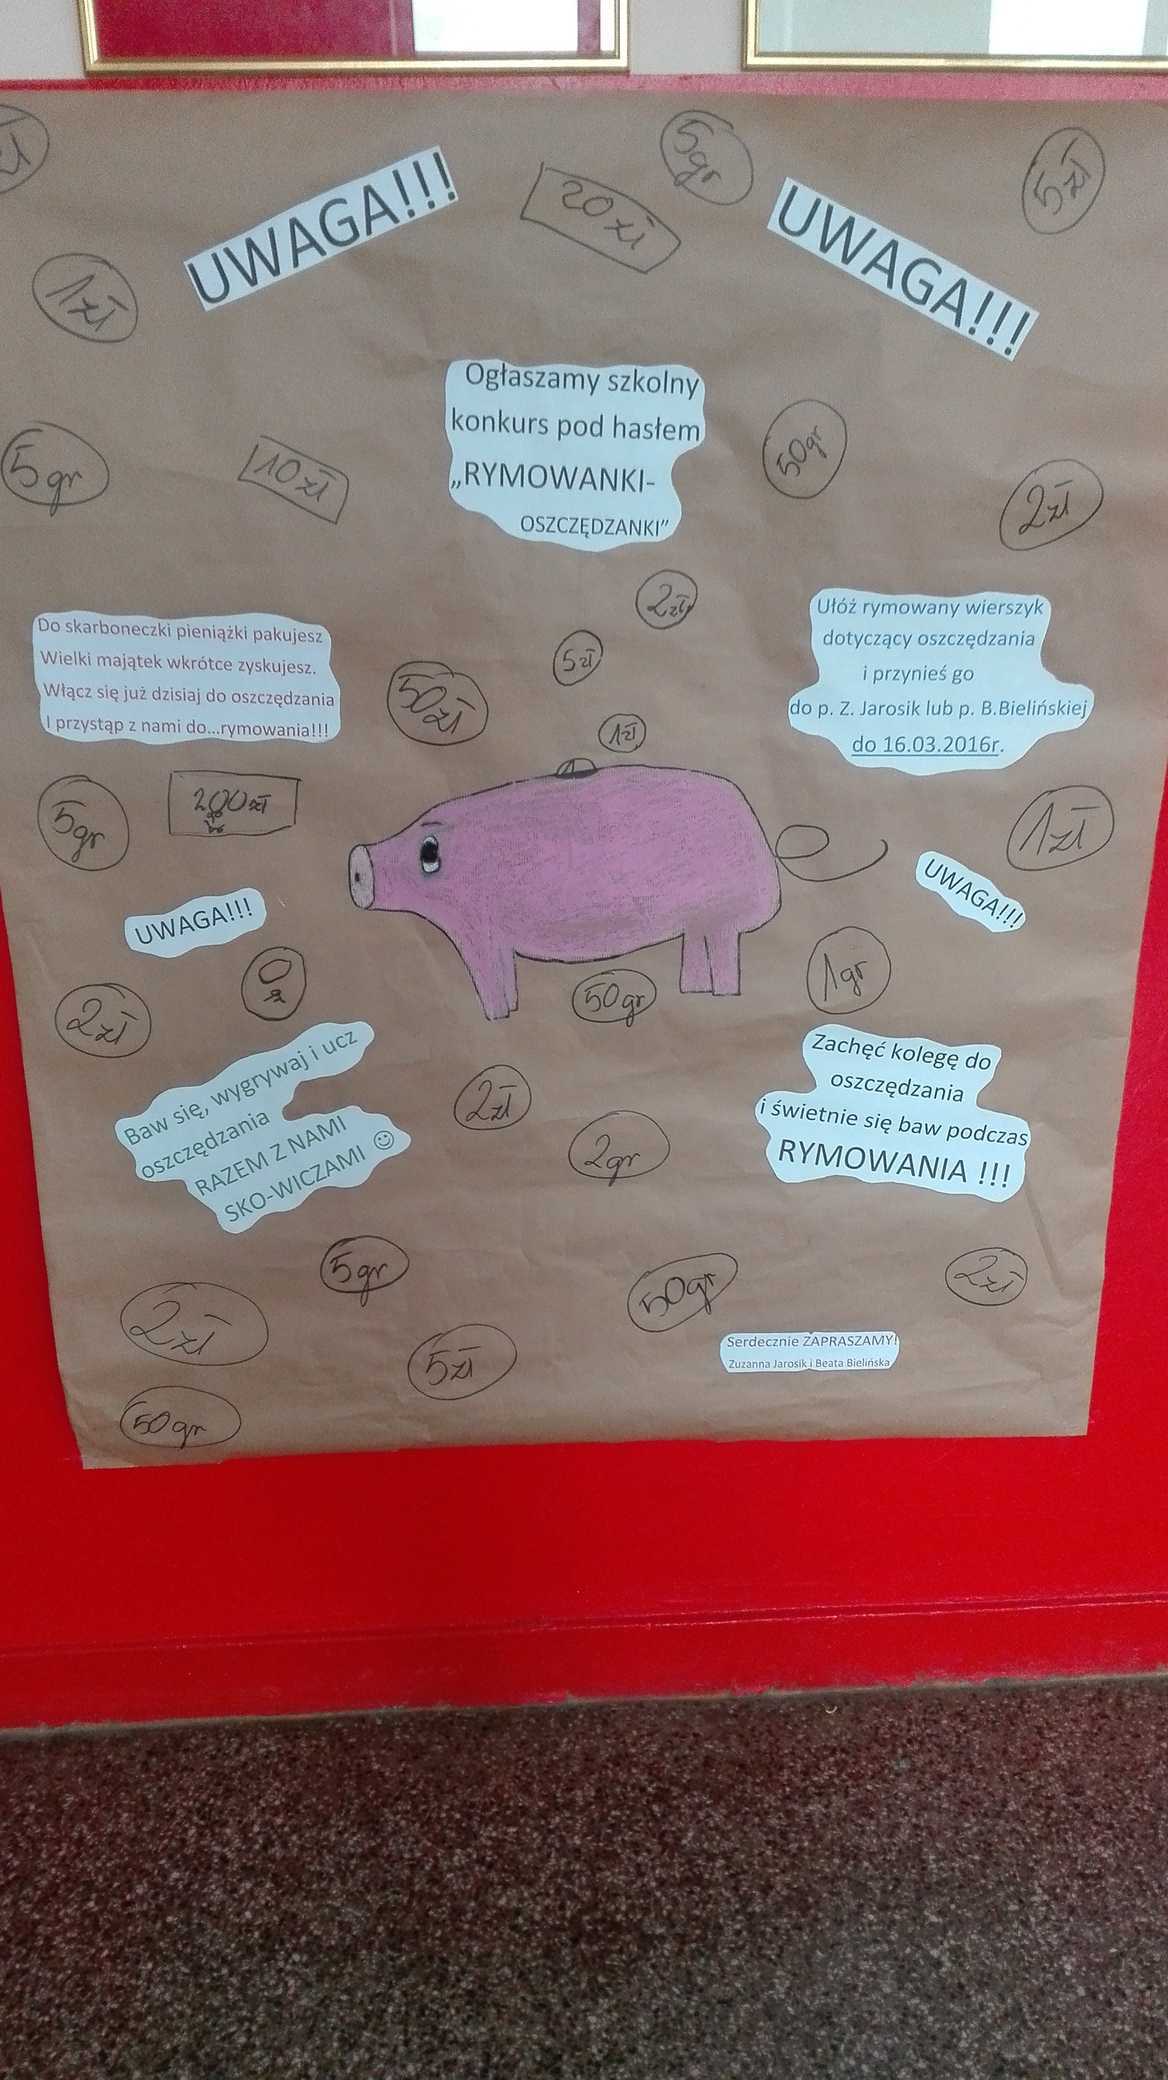 zł
5gr
5zł
UWAGA!!!
20 zł
UWAGA!!!
1zł
Ogłaszamy szkolny
konkurs pod hasłem
„RYMOWANKI-
OSZCZĘDZANKI”
5gr
10 zł
50gr
2zł
2zł
5zł
1zł
50zł
Do skarboneczki pieniążki pakujesz
Wielki majątek wkrótce zyskujesz.
Włącz się już dzisiaj do oszczędzania
I przystąp z nami do...rymowania!!!
Ułóż rymowany wierszyk
dotyczący oszczędzania
i przynieś go
do p. Z. Jarosik lub p. B.Bielińskiej
do 16.03.2016r.
5gr
200 zł
1zł
UWAGA!!!
UWAGA!!!
2zł
50gr
1gr
Baw się, wygrywaj i ucz
oszczędzania
RAZEM Z NAMI
SKO-WICZAMI ☺
2zł
2gr
Zachęć kolegę do
oszczędzania
i świetnie się baw podczas
RYMOWANIA !!!
5gr
50gr
2zł
2zł
5zł
Serdecznie ZAPRASZAMY!
Zuzanna Jarosik i Beata Bielińska
50gr